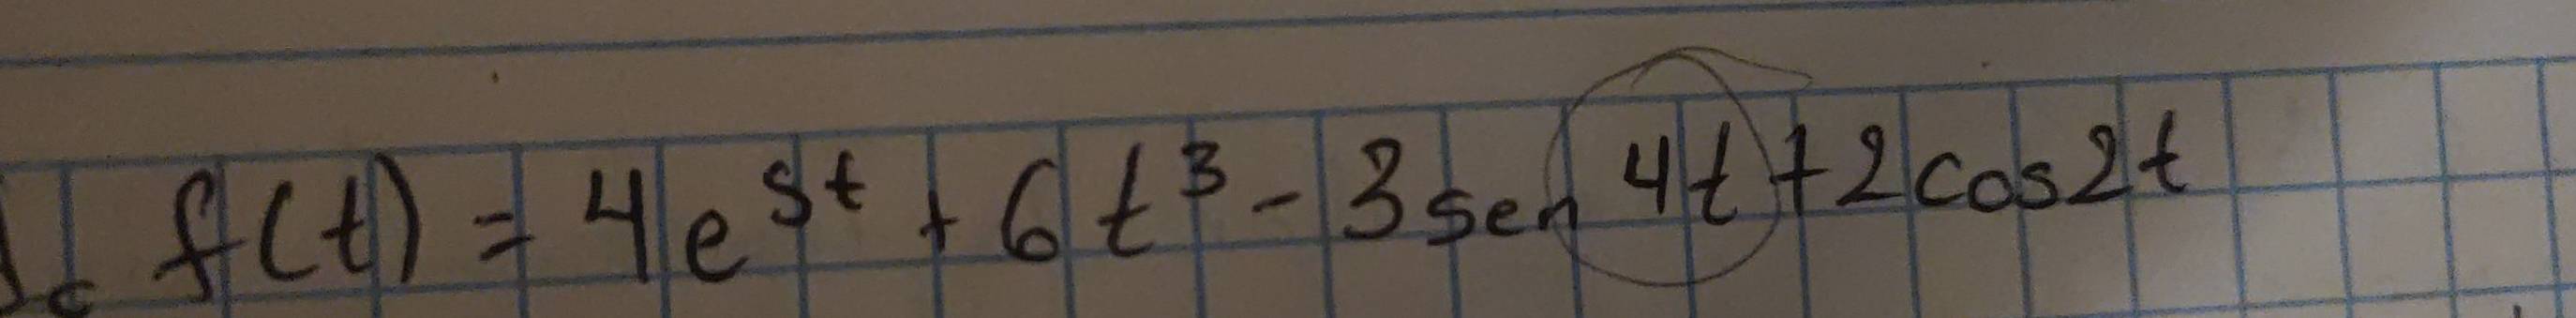 f(t) = 4e^{5t} + 6t^3 - 3sen 4t + 2cos2t